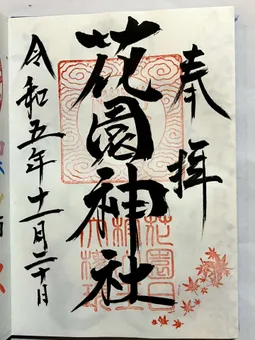 奉拝
花園神社
令和五年十一月二十日